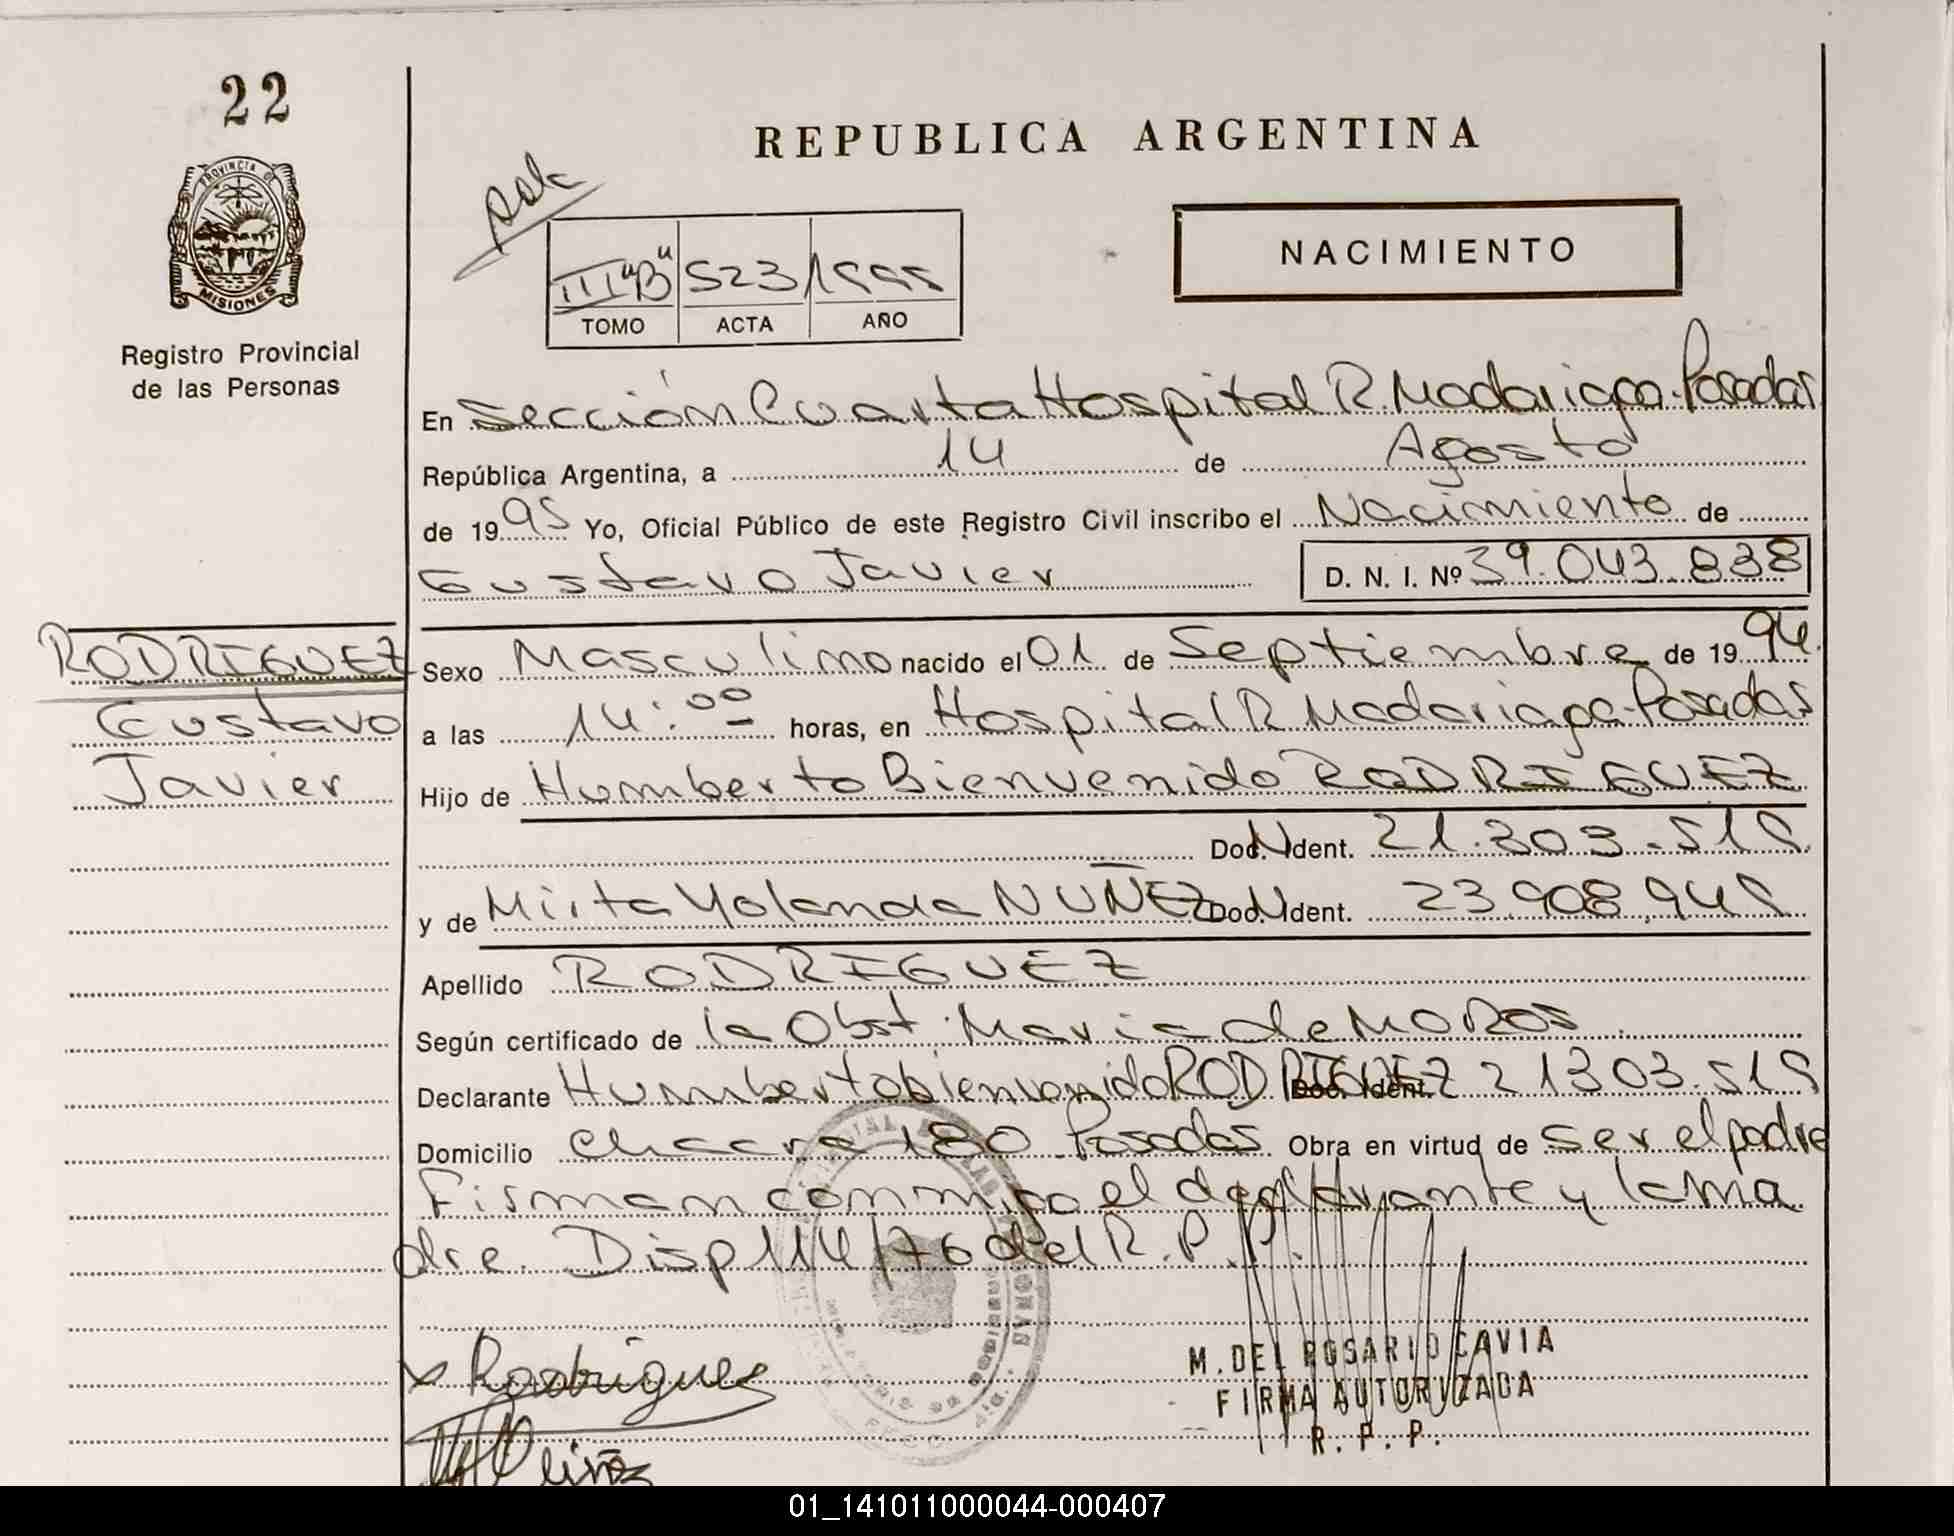 22
REPUBLICA ARGENTINA
PROVINCIA DE
MISIONES
Registro Provincial
de las Personas
NACIMIENTO
III "B" 523 1995
TOMO ACTA AÑO
En Sección Cuarta Hospital R. Madariaga - Posadas
República Argentina, a 14 de Agosto
de 1995 Yo, Oficial Público de este Registro Civil inscribo el Nacimiento de
Gustavo Javier D. N. I. Nº 39.043.838
RODRIGUEZ
Gustavo
Javier
Sexo Masculino nacido el 01 de Septiembre de 1994.
a las 14:00 horas, en Hospital R. Madariaga - Posadas
Hijo de Humberto Bienvenido RODRIGUEZ
Doc. N Ident. 21.303.515
y de Mirta Yolanda NUÑEZ Doc. N Ident. 23.908.945
Apellido RODRIGUEZ
Según certificado de la Obst. Maria de MOROS
Declarante Humberto bienvenido RODRIGUEZ Doc. Ident. 21303.515
Domicilio Chacra 180 Posadas Obra en virtud de ser el padre
Firman conmigo el declarante y la ma
dre. Disp 114/76 del R.P.P.
x Rodriguez
M. DEL ROSARIO CAVIA
FIRMA AUTORIZADA
R. P. P.
01_141011000044-000407